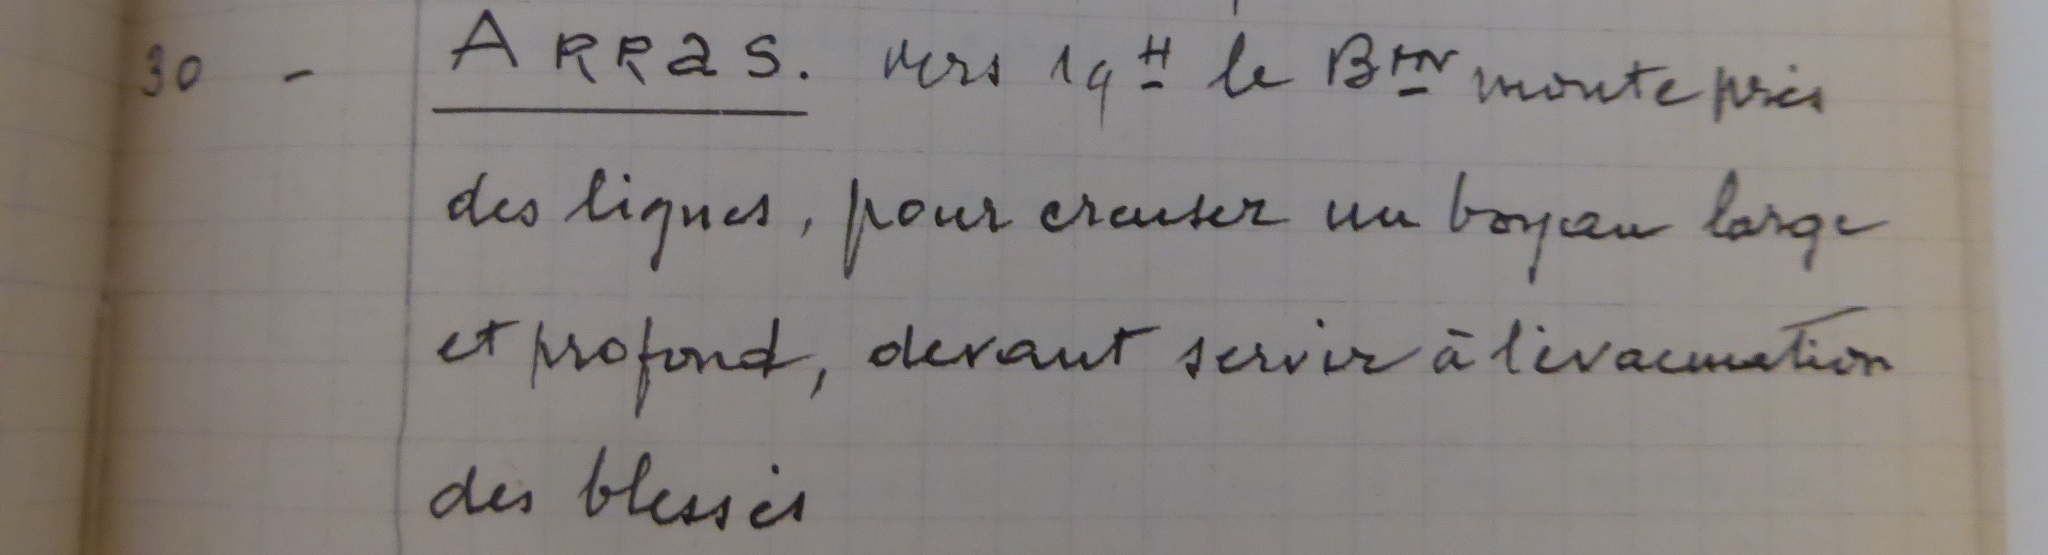 30 - ARRas. vers 19H le Bton monte près
des lignes, pour creuser un boyau large
et profond, devant servir à l'évacuation
des blessés